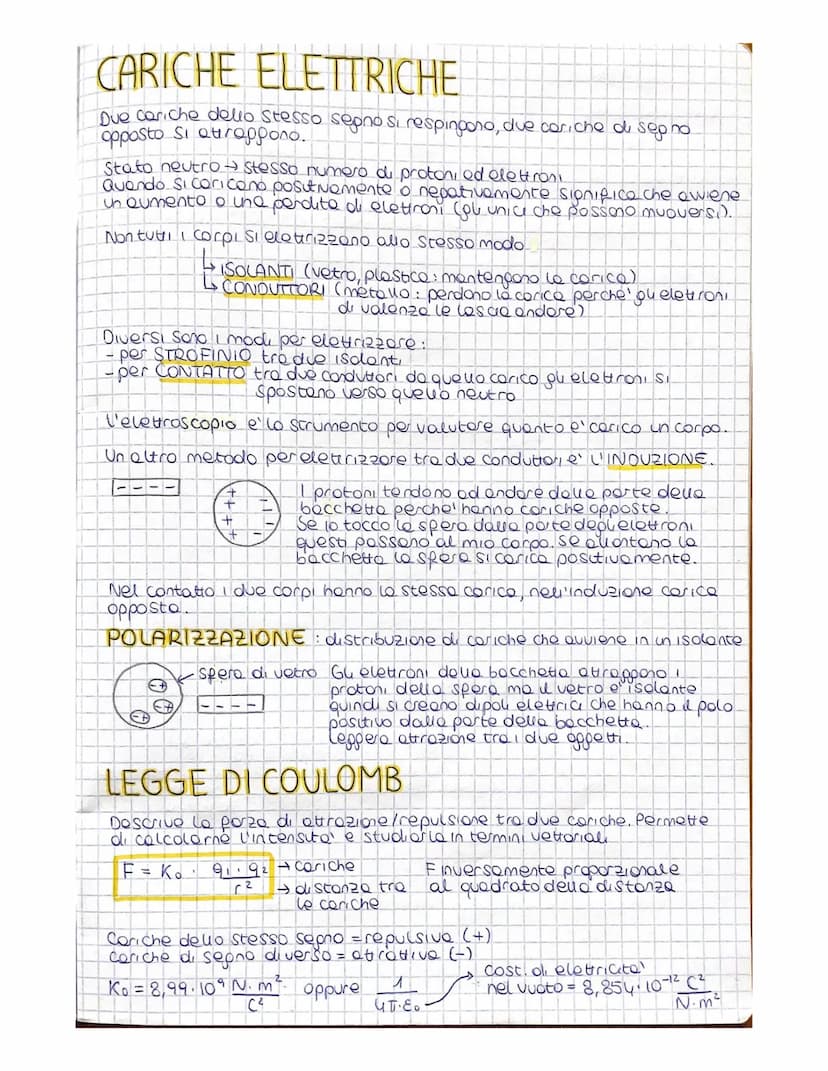 CARICHE ELETTRICHE
Due cariche dello stesso segno si respingono, due cariche di segno
opposto si attraggono.
Stato neutro → stesso numero di protoni ed elettroni
Quando si caricano positivamente o negativamente significa che avviene
un aumento o una perdita di elettroni (gli unici che possono muoversi).
Non tutti i corpi si elettrizzano allo stesso modo
↳ ISOLANTI (vetro, plastica: mantengono la carica)
↳ CONDUTTORI (metallo: perdono la carica perche' gli elettroni
di valenza le lascia andare)
Diversi sono i modi per elettrizzare:
- per STROFINIO tra due isolanti
- per CONTATTO tra due conduttori da quello carico gli elettroni si
spostano verso quello neutro
L'elettroscopio e' lo strumento per valutare quanto e' carico un corpo.
Un altro metodo per elettrizzare tra due conduttori e' L'INDUZIONE.
- - - -
+ + + + - - - -
I protoni tendono ad andare dalla parte della
bacchetta perche' hanno cariche opposte.
Se io tocco la sfera dalla parte degli elettroni
questi passano al mio corpo. Se allontano la
bacchetta la sfera si carica positivamente.
Nel contatto i due corpi hanno la stessa carica, nell'induzione carica
opposta.
POLARIZZAZIONE : distribuzione di cariche che avviene in un isolante
sfera di vetro
-+ -+ -+
- - - -
Gli elettroni della bacchetta attraggono i
protoni della sfera ma il vetro e' isolante
quindi si creano dipoli elettrici che hanno il polo
positivo dalla parte della bacchetta.
Leggera attrazione tra i due oggetti.
LEGGE DI COULOMB
Descrive la forza di attrazione/repulsione tra due cariche. Permette
di calcolarne l'intensita' e studiarla in termini vettoriali
F = K₀ · q₁ · q₂ / r²
→ cariche
→ distanza tra
le cariche
F inversamente proporzionale
al quadrato della distanza
Cariche dello stesso segno = repulsiva (+)
cariche di segno diverso = attrattiva (-)
K₀ = 8,99 · 10⁹ N · m² / C² oppure 1 / 4π · ε₀
cost. di elettricita'
nel vuoto = 8,854 · 10⁻¹² C² / N · m²